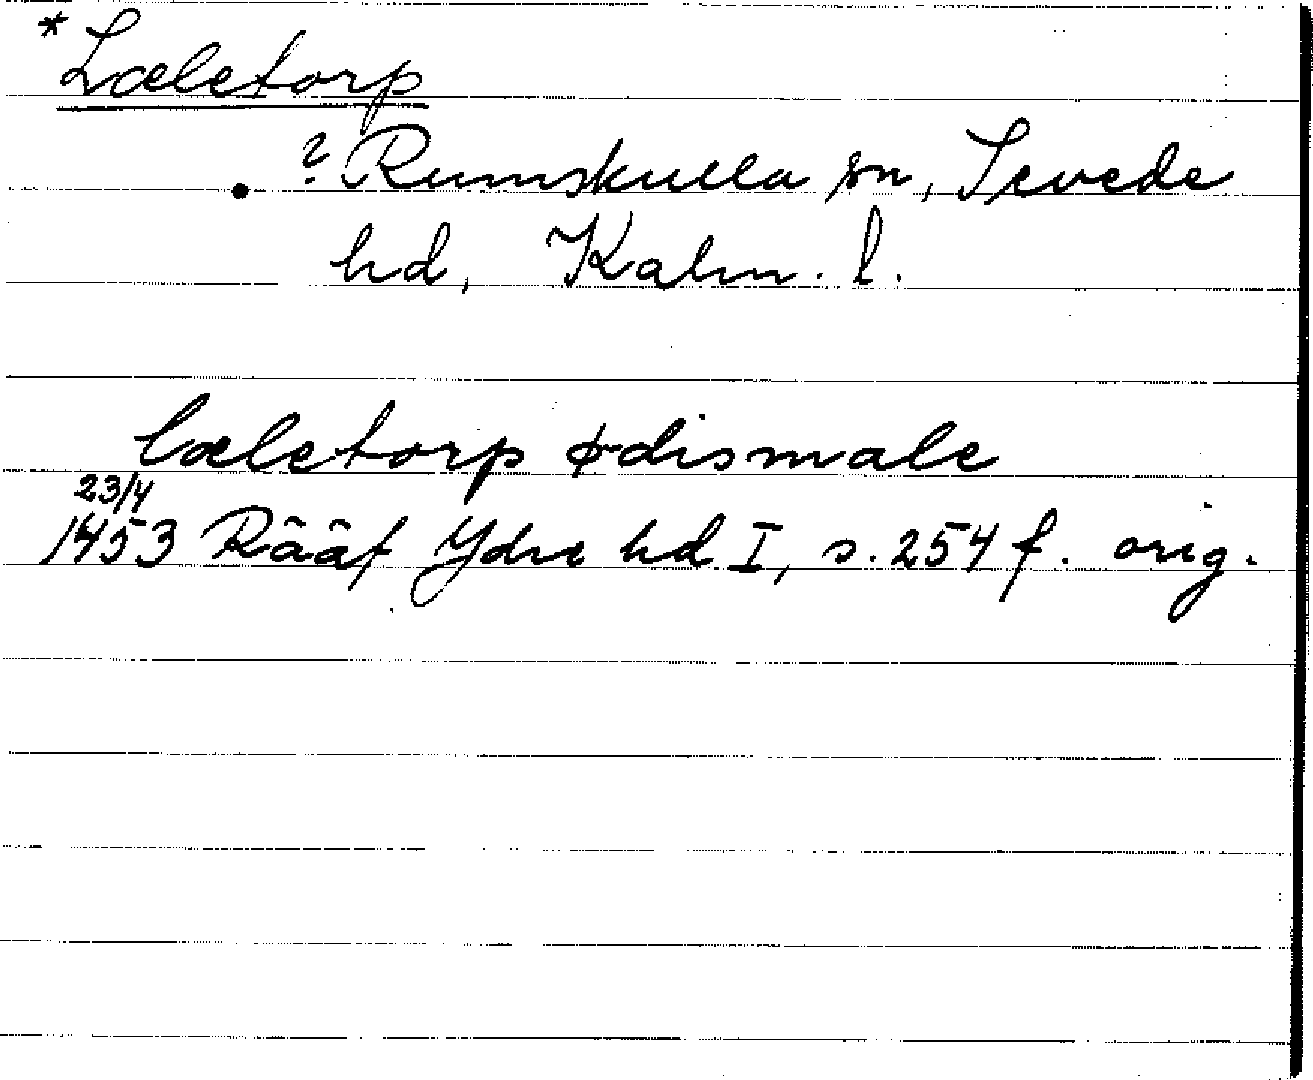 *Læletorp
? Rumskulla sn, Sevede
hd, Kalm. l.
læletorp ødismale
23/4
1453 Rääf Ydre hd I, s. 254 f. orig.